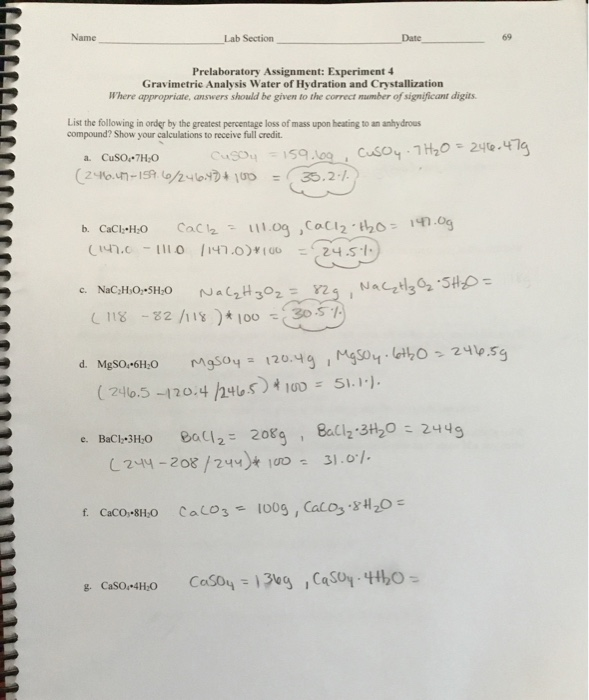 Name Lab Section Date 69
Prelaboratory Assignment: Experiment 4
Gravimetric Analysis Water of Hydration and Crystallization
Where appropriate, answers should be given to the correct number of significant digits.
List the following in order by the greatest percentage loss of mass upon heating to an anhydrous
compound? Show your calculations to receive full credit.
a. CuSO₄•7H₂O CuSO₄ = 159.6g, CuSO₄·7H₂O = 246.47g
(246.47-159.6/246.47)*100 = 35.2%
b. CaCl₂•H₂O CaCl₂ = 111.0g, CaCl₂·H₂O = 147.0g
(147.0 - 111.0 /147.0)*100 = 24.5%
c. NaC₂H₃O₂•5H₂O NaC₂H₃O₂ = 82g, NaC₂H₃O₂·5H₂O =
(118 - 82 /118)*100 = 30.5%
d. MgSO₄•6H₂O MgSO₄ = 120.4g, MgSO₄·6H₂O = 246.5g
(246.5 -120.4 /246.5)*100 = 51.1%.
e. BaCl₂•3H₂O BaCl₂ = 208g, BaCl₂·3H₂O = 244g
(244-208/244)*100 = 31.0%.
f. CaCO₃•8H₂O CaCO₃ = 100g, CaCO₃·8H₂O =
g. CaSO₄•4H₂O CaSO₄ = 136g, CaSO₄·4H₂O =